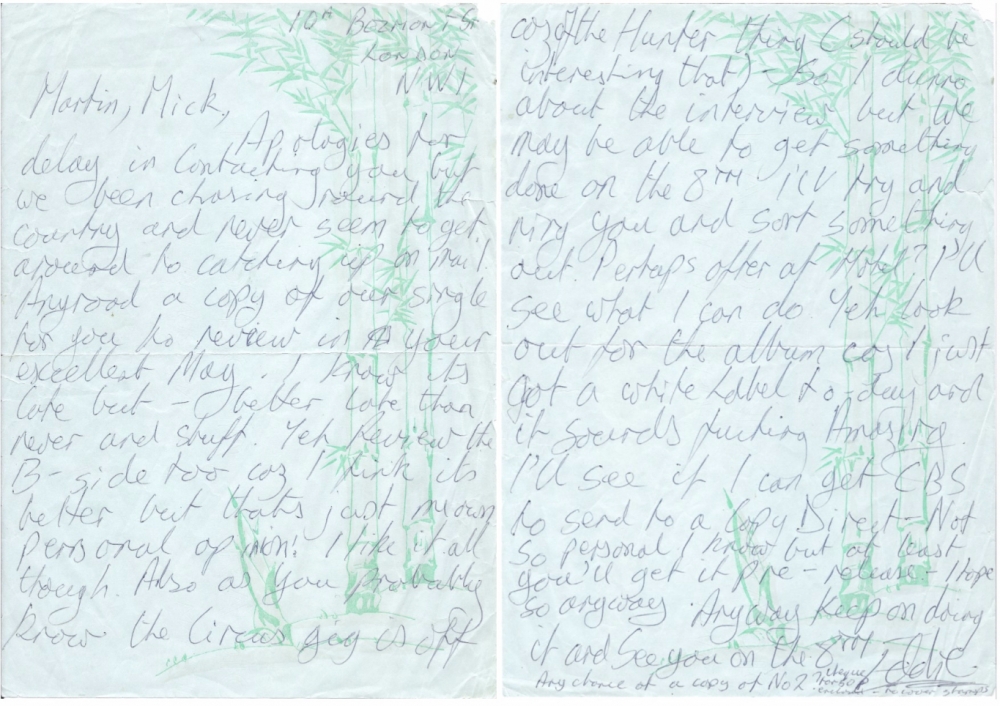 10A
London
NW1
Martin, Mick,
Apologies for
delay in contacting you but
we been chasing around the
country and never seem to get
around to catching up on mail.
Anyroad a copy of our single
for you to review in your
excellent Mag. I know its
late but - better late than
never and stuff. Yeh Review the
B-side too coz I think its
better but thats just my own
personal opinion! I like it all
though. Also as you probably
know the Circus gig is off
coz of the Hunter thing (should be
interesting that) - So I dunno
about the interview but we
may be able to get something
done on the 8TH I'll try and
ring you and sort something
out. Perhaps after at Hotel? I'll
see what I can do. Yeh look
out for the album coz I just
got a white label to-day and
it sounds fucking Amazing.
I'll see if I can get CBS
to send to a copy Direct - Not
so personal I know but at least
you'll get it pre-release - I hope
so anyway. Anyway Keep on doing
it and See you on the 8TH
Any chance of a copy of No 2